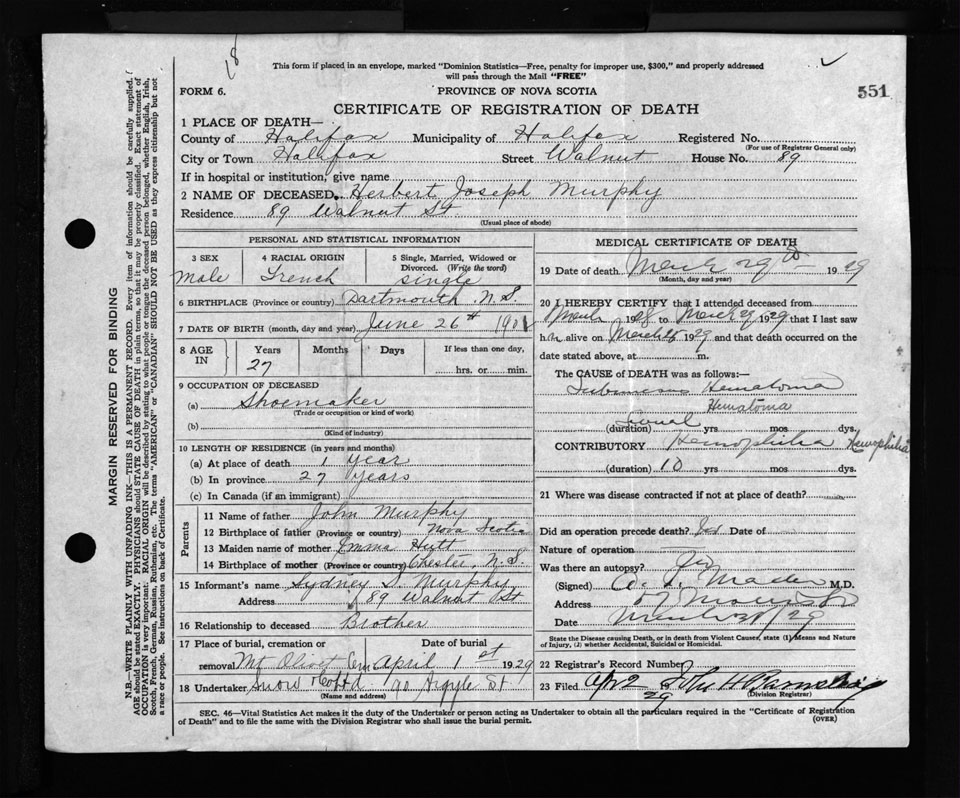 18
This form if placed in an envelope, marked "Dominion Statistics—Free, penalty for improper use, $300," and properly addressed
will pass through the Mail "FREE"
FORM 6.
PROVINCE OF NOVA SCOTIA
551
CERTIFICATE OF REGISTRATION OF DEATH
1 PLACE OF DEATH—
County of Halifax Municipality of Halifax Registered No.
(For use of Registrar General only)
City or Town Halifax Street Walnut House No. 89
If in hospital or institution, give name
2 NAME OF DECEASED. Herbert Joseph Murphy
Residence 89 Walnut St
(Usual place of abode)
PERSONAL AND STATISTICAL INFORMATION
3 SEX 4 RACIAL ORIGIN 5 Single, Married, Widowed or
Divorced. (Write the word)
Male French Single
6 BIRTHPLACE (Province or country) Dartmouth N.S.
7 DATE OF BIRTH (month, day and year) June 26th 1901
8 AGE IN Years Months Days If less than one day,
27 hrs. or min.
9 OCCUPATION OF DECEASED
(a) Shoemaker
(Trade or occupation or kind of work)
(b)
(Kind of industry)
10 LENGTH OF RESIDENCE (in years and months)
(a) At place of death 1 year
(b) In province 27 years
(c) In Canada (if an immigrant)
Parents
11 Name of father John Murphy
12 Birthplace of father (Province or country) Nova Scotia
13 Maiden name of mother Emma Hutt
14 Birthplace of mother (Province or country) Chester, N.S.
15 Informant's name Sydney J. Murphy
Address 89 Walnut St
16 Relationship to deceased Brother
17 Place of burial, cremation or Date of burial
removal Mt Olivet Cem April 1st 1929
18 Undertaker Snow Co Ltd 90 Argyle St
(Name and address)
MEDICAL CERTIFICATE OF DEATH
19 Date of death March 29th 1929
(Month, day and year)
20 I HEREBY CERTIFY that I attended deceased from
March 1928 to March 29 1929 that I last saw
h alive on March 25 1929 and that death occurred on the
date stated above, at m.
The CAUSE of DEATH was as follows:—
Hematoma
Hematoma
(duration) yrs mos dys.
CONTRIBUTORY Hemophilia Hemophilia
(duration) 10 yrs mos dys.
21 Where was disease contracted if not at place of death?
Did an operation precede death? Date of
Nature of operation
Was there an autopsy?
(Signed) Mader M.D.
Address
Date March /29
State the Disease causing Death, or in death from Violent Causes, state (1) Means and Nature
of Injury, (2) whether Accidental, Suicidal or Homicidal.
22 Registrar's Record Number
23 Filed Apr 2 1929 John H Barnstead
(Division Registrar)
SEC. 46—Vital Statistics Act makes it the duty of the Undertaker or person acting as Undertaker to obtain all the particulars required in the "Certificate of Registration
of Death" and to file the same with the Division Registrar who shall issue the burial permit.
(OVER)
MARGIN RESERVED FOR BINDING
N.B.—WRITE PLAINLY WITH UNFADING INK—THIS IS A PERMANENT RECORD. Every item of information should be carefully supplied.
AGE should be stated EXACTLY. PHYSICIANS should STATE CAUSE OF DEATH in plain terms, so that it may be properly classified. Exact statement of
OCCUPATION is very important. RACIAL ORIGIN will be described by stating to what people or tongue the deceased person belonged, whether English, Irish,
Scotch, French, German, Russian, Ruthenian, etc. The terms "AMERICAN" or "CANADIAN" SHOULD NOT BE USED as they express citizenship but not
a race or people. See instructions on back of Certificate.